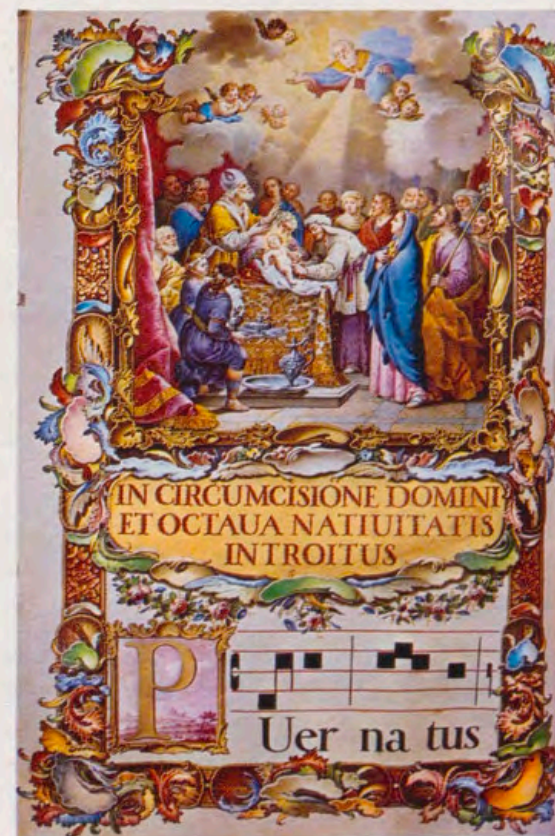 IN CIRCUMCISIONE DOMINI
ET OCTAUA NATIUITATIS
INTROITUS
P
Uer na tus